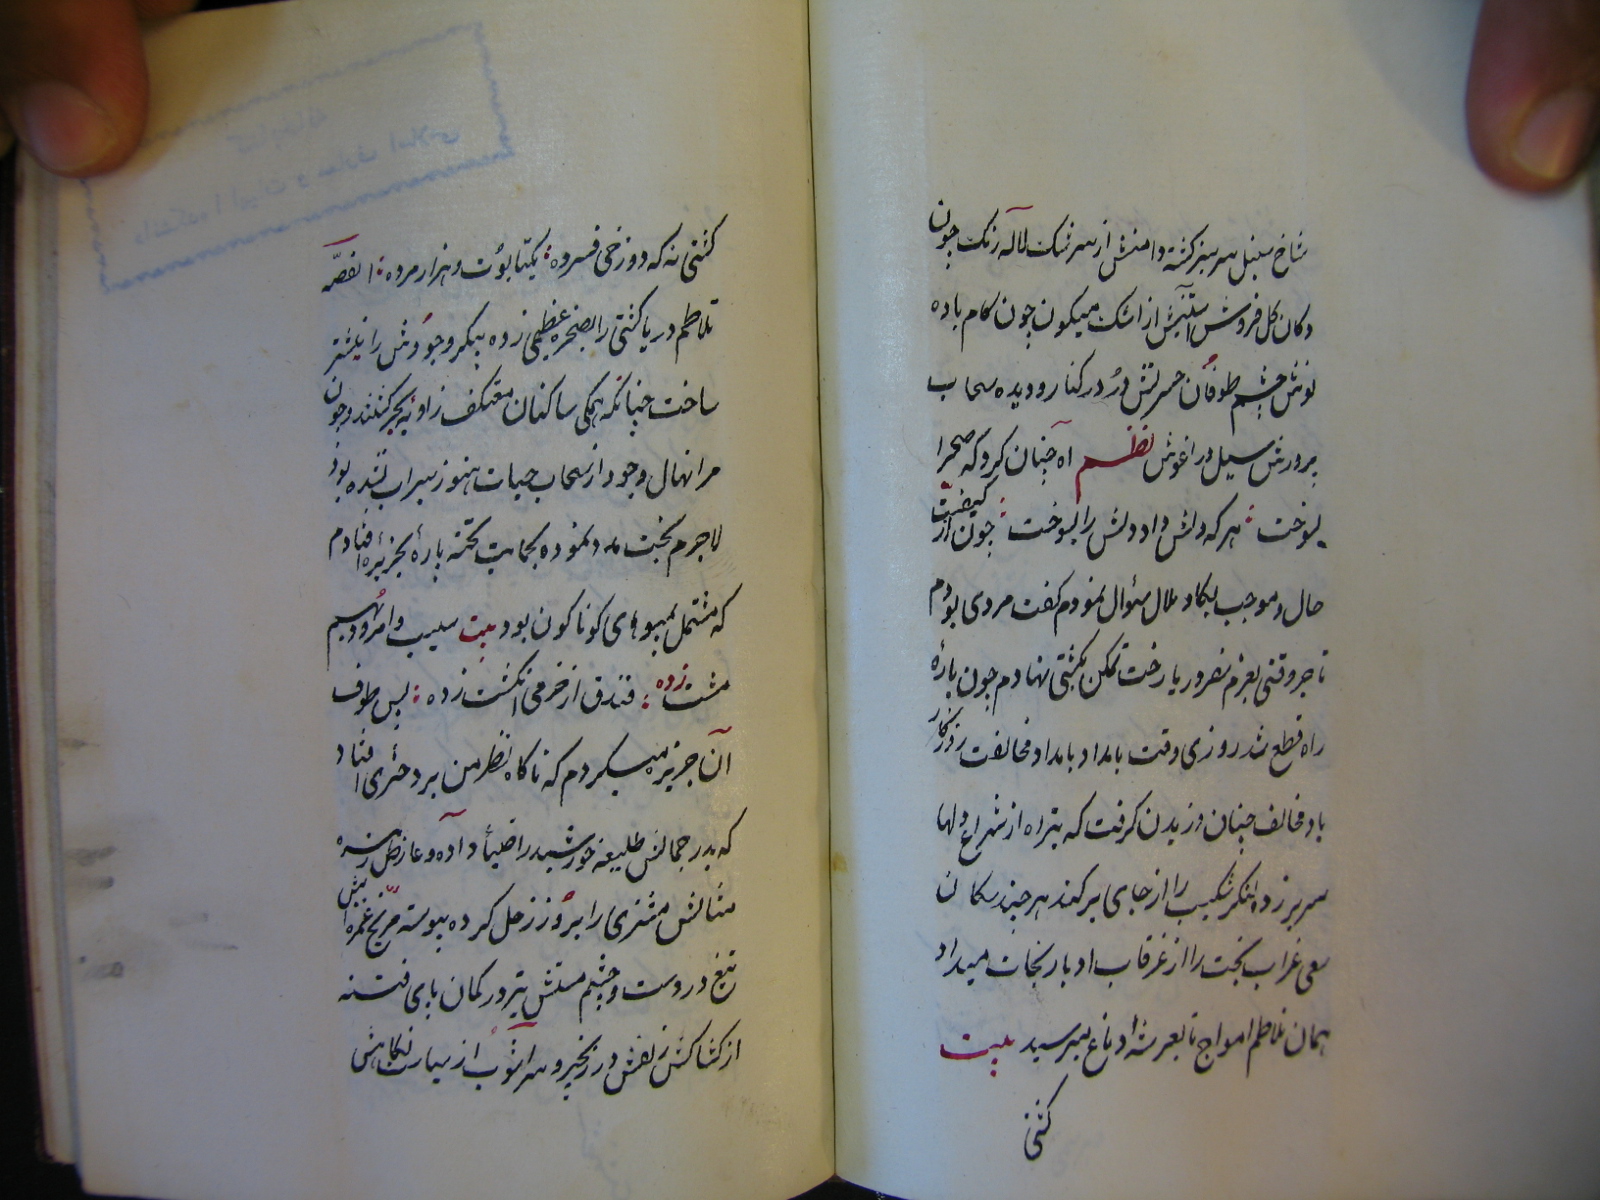 شاخ سنبل سرسبز گشته و دامنش از سرشک لاله رنک چون
دکان گل فروش آستینش از اشک میکون چون کام باده
نوش چشم طوفان حسرتش در در کنار و دیده سحاب
پرورش سیل در اغوش نظم آه چنان کرد که صحرا
بسوخت هر که دلش داد دلش را بسوخت چون از کیفیت
حال و موجب بکا و ملال سئوال نمودم کفت مردی بودم
تاجر وقتی بعزم سفر دریا رخت تمکن بکشتی نهادم چون پارهٔ
راه قطع شد روزی وقت بامداد بامداد مخالفت روزکار
باد مخالف چنان وزیدن کرفت که تیر آه از شراع دلها
سر بر زده لنکر شکیب را از جای برکند هر چند سکان
سعی غراب بخت را از غرقاب ادبار نجات میداد
همان تلاطم امواج تا بعرشه دماغ میرسید بیت
کشتی
کشتی نه که دوزخی فسرده یکتا بوت و هزار مرده القصّه
تلاطم دریا کشتی را بصخرهٔ عظیمی زده پیکر وجودش را
ساخت چنانکه همکی ساکنان معتکف زاویه بحر کشتند و چون
مرا نهال وجود از سحاب حیات هنوز سیراب نشده بود
لاجرم بخت مدد نموده بحمایت تخته پارهٔ بجزیرهٔ افتادم
که مشتمل بمیوهای کوناکون بود بیت سیب و امرود بهم
مشت زده فندق از خرمی انکشت زده پس طوف
آن جزیره میکردم که ناکاه نظر من بر دختری افتاد
که بدر جمالش طلیعه خورشید را ضیأ داده و عارض زهره
مثالش مشتری را بروز زحل کرده پیوسته مریخ غمزه اش
تیغ در دست و چشم مستش تیر در کمان پای فتنه
از کشاکش زلفش در زنجیر و سر آشوب از نکاهش